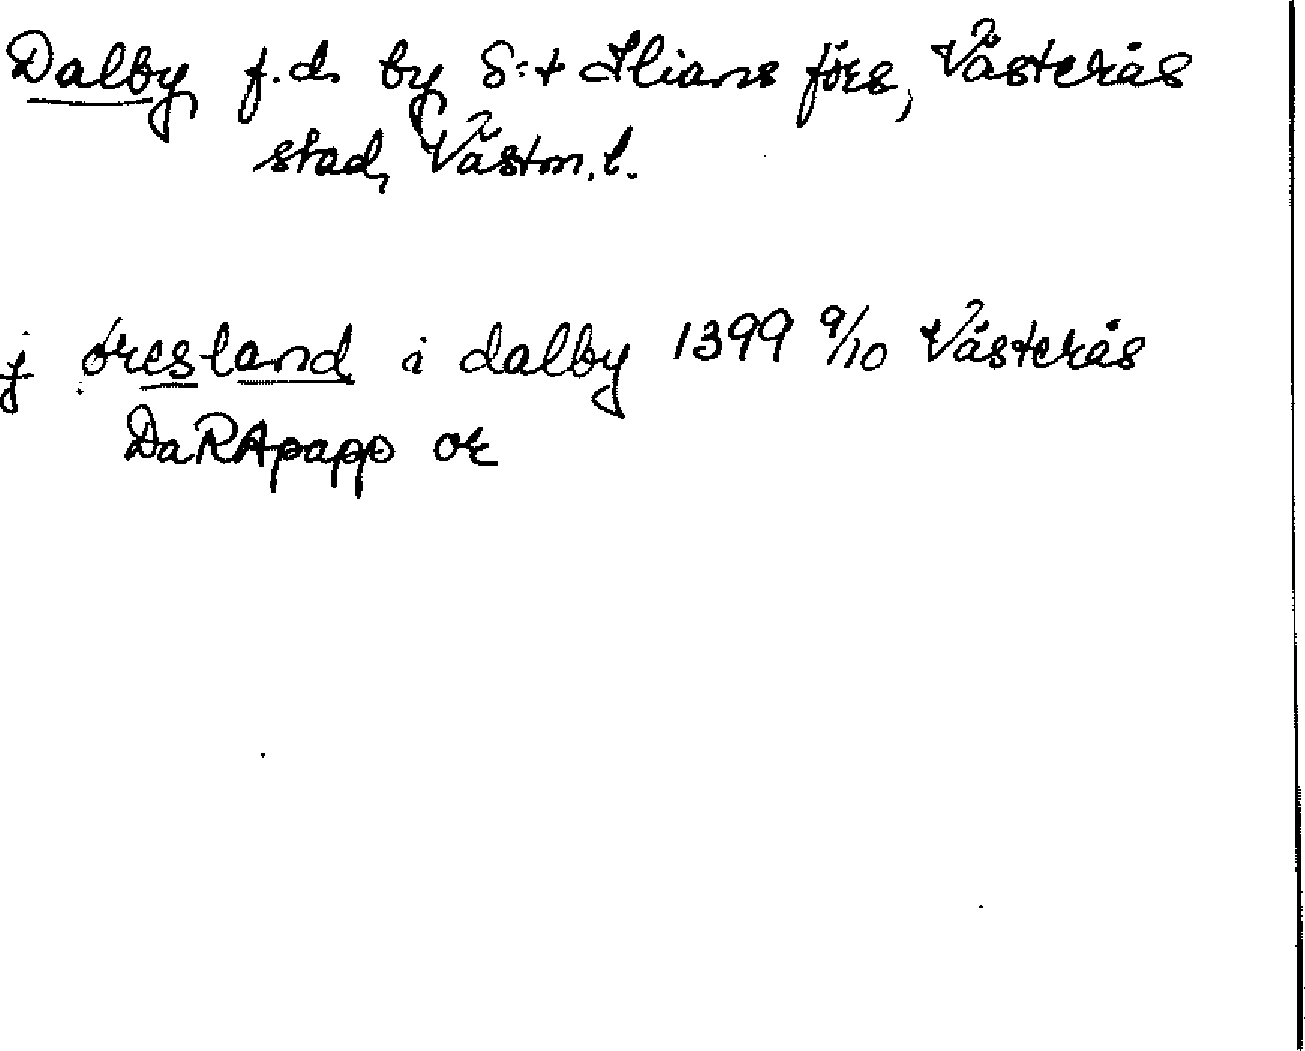 Dalby f.d. by S:t Ilians förs, Västerås
stad, Västm. l.
j øresland i dalby 1399 9/10 Västerås
DaRApapp or